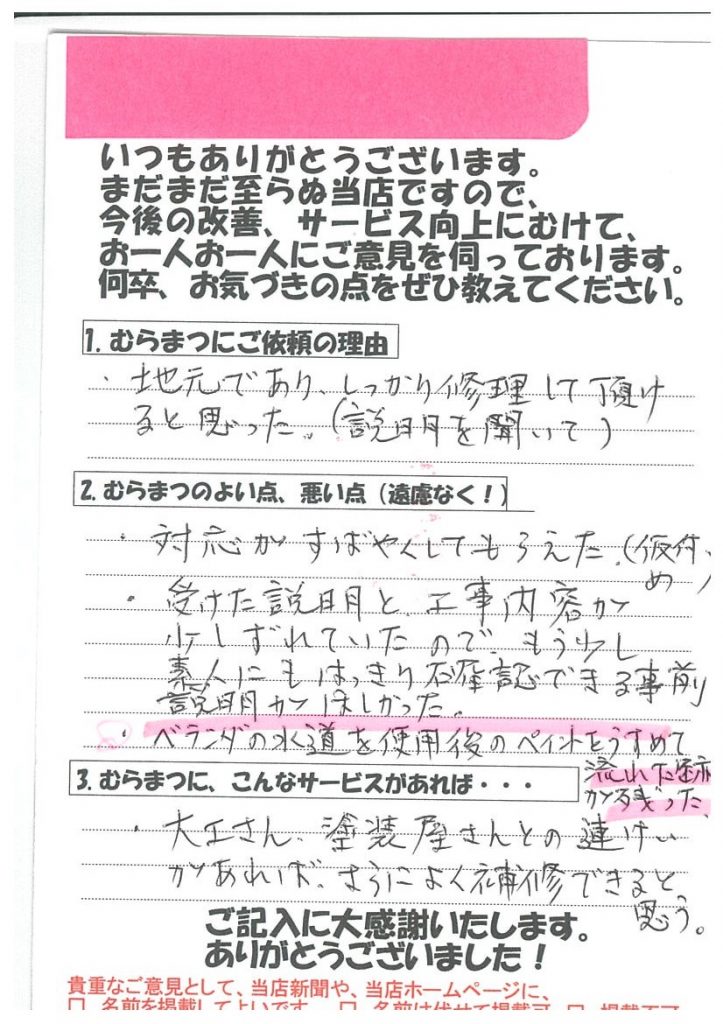 いつもありがとうございます。
まだまだ至らぬ当店ですので、
今後の改善、サービス向上にむけて、
お一人お一人にご意見を伺っております。
何卒、お気づきの点をぜひ教えてください。
1. むらまつにご依頼の理由
・地元であり、しっかり修理して頂け
ると思った。(説明を聞いて)
2. むらまつのよい点、悪い点（遠慮なく！）
・対応がすばやくしてもらえた。(仮付、
め)
・受けた説明と、工事内容が
少しずれていたので、もう少し
素人にもはっきり確認できる事前
説明がほしかった。
・ベランダの水道を使用後のペイントをうすめて
流れた跡
が残った。
3. むらまつに、こんなサービスがあれば・・・
・大工さん、塗装屋さんとの連けい
があれば、さらによく補修できると
思う。
ご記入に大感謝いたします。
ありがとうございました！
貴重なご意見として、当店新聞や、当店ホームページに、
□ 名前を掲載してよいです □ 名前は伏せて掲載可 □ 掲載不可